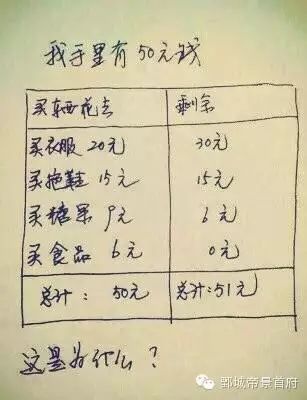 我手里有50元钱
买东西花去 剩余
买衣服 20元 30元
买拖鞋 15元 15元
买糖果 9元 6元
买食品 6元 0元
总计: 50元 总计:51元
这是为什么?
鄄城帝景首府